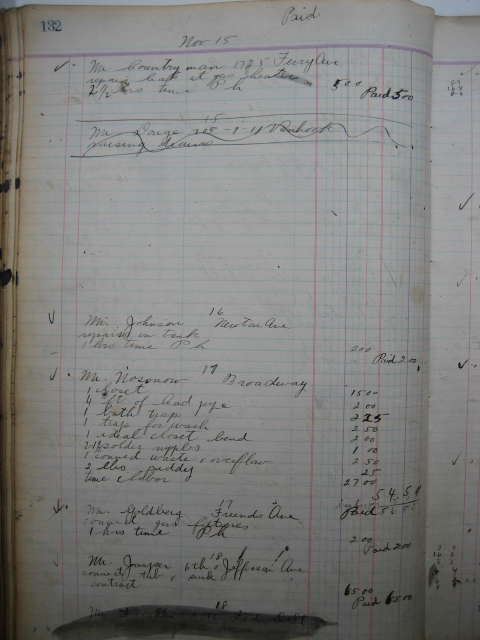 132
Paid
Nov 15
Mr Countryman 1725 Ferry Ave
repair leak at gas heater
2 1/2 hrs time P h 5 00
Paid 5 00
15
Mr 
raising
16
Mr Johnson Newton Ave
repairs on tank
1 hrs time P h 2 00
Paid 2 00
17
Mr. Nosonow Broadway
1 closet 15 00
4 ft of lead pipe 2 00
1 bath trap 2 25
1 trap for wash 2 50
1 ideal closet bend 2 00
2 solder nipples 1 00
1 conned waste & overflow 2 50
2 lbs. puddy 25
time & labor 27 00
54.50
Paid
17
Mr. Goldberg Friends Ave
connect gas fixtures
1 hrs time P h 2 00
Paid 2 00
18
Mr. Juniper 6th & Jefferson Ave
connect tub & sink
contract 65 00
Paid 65 00
18